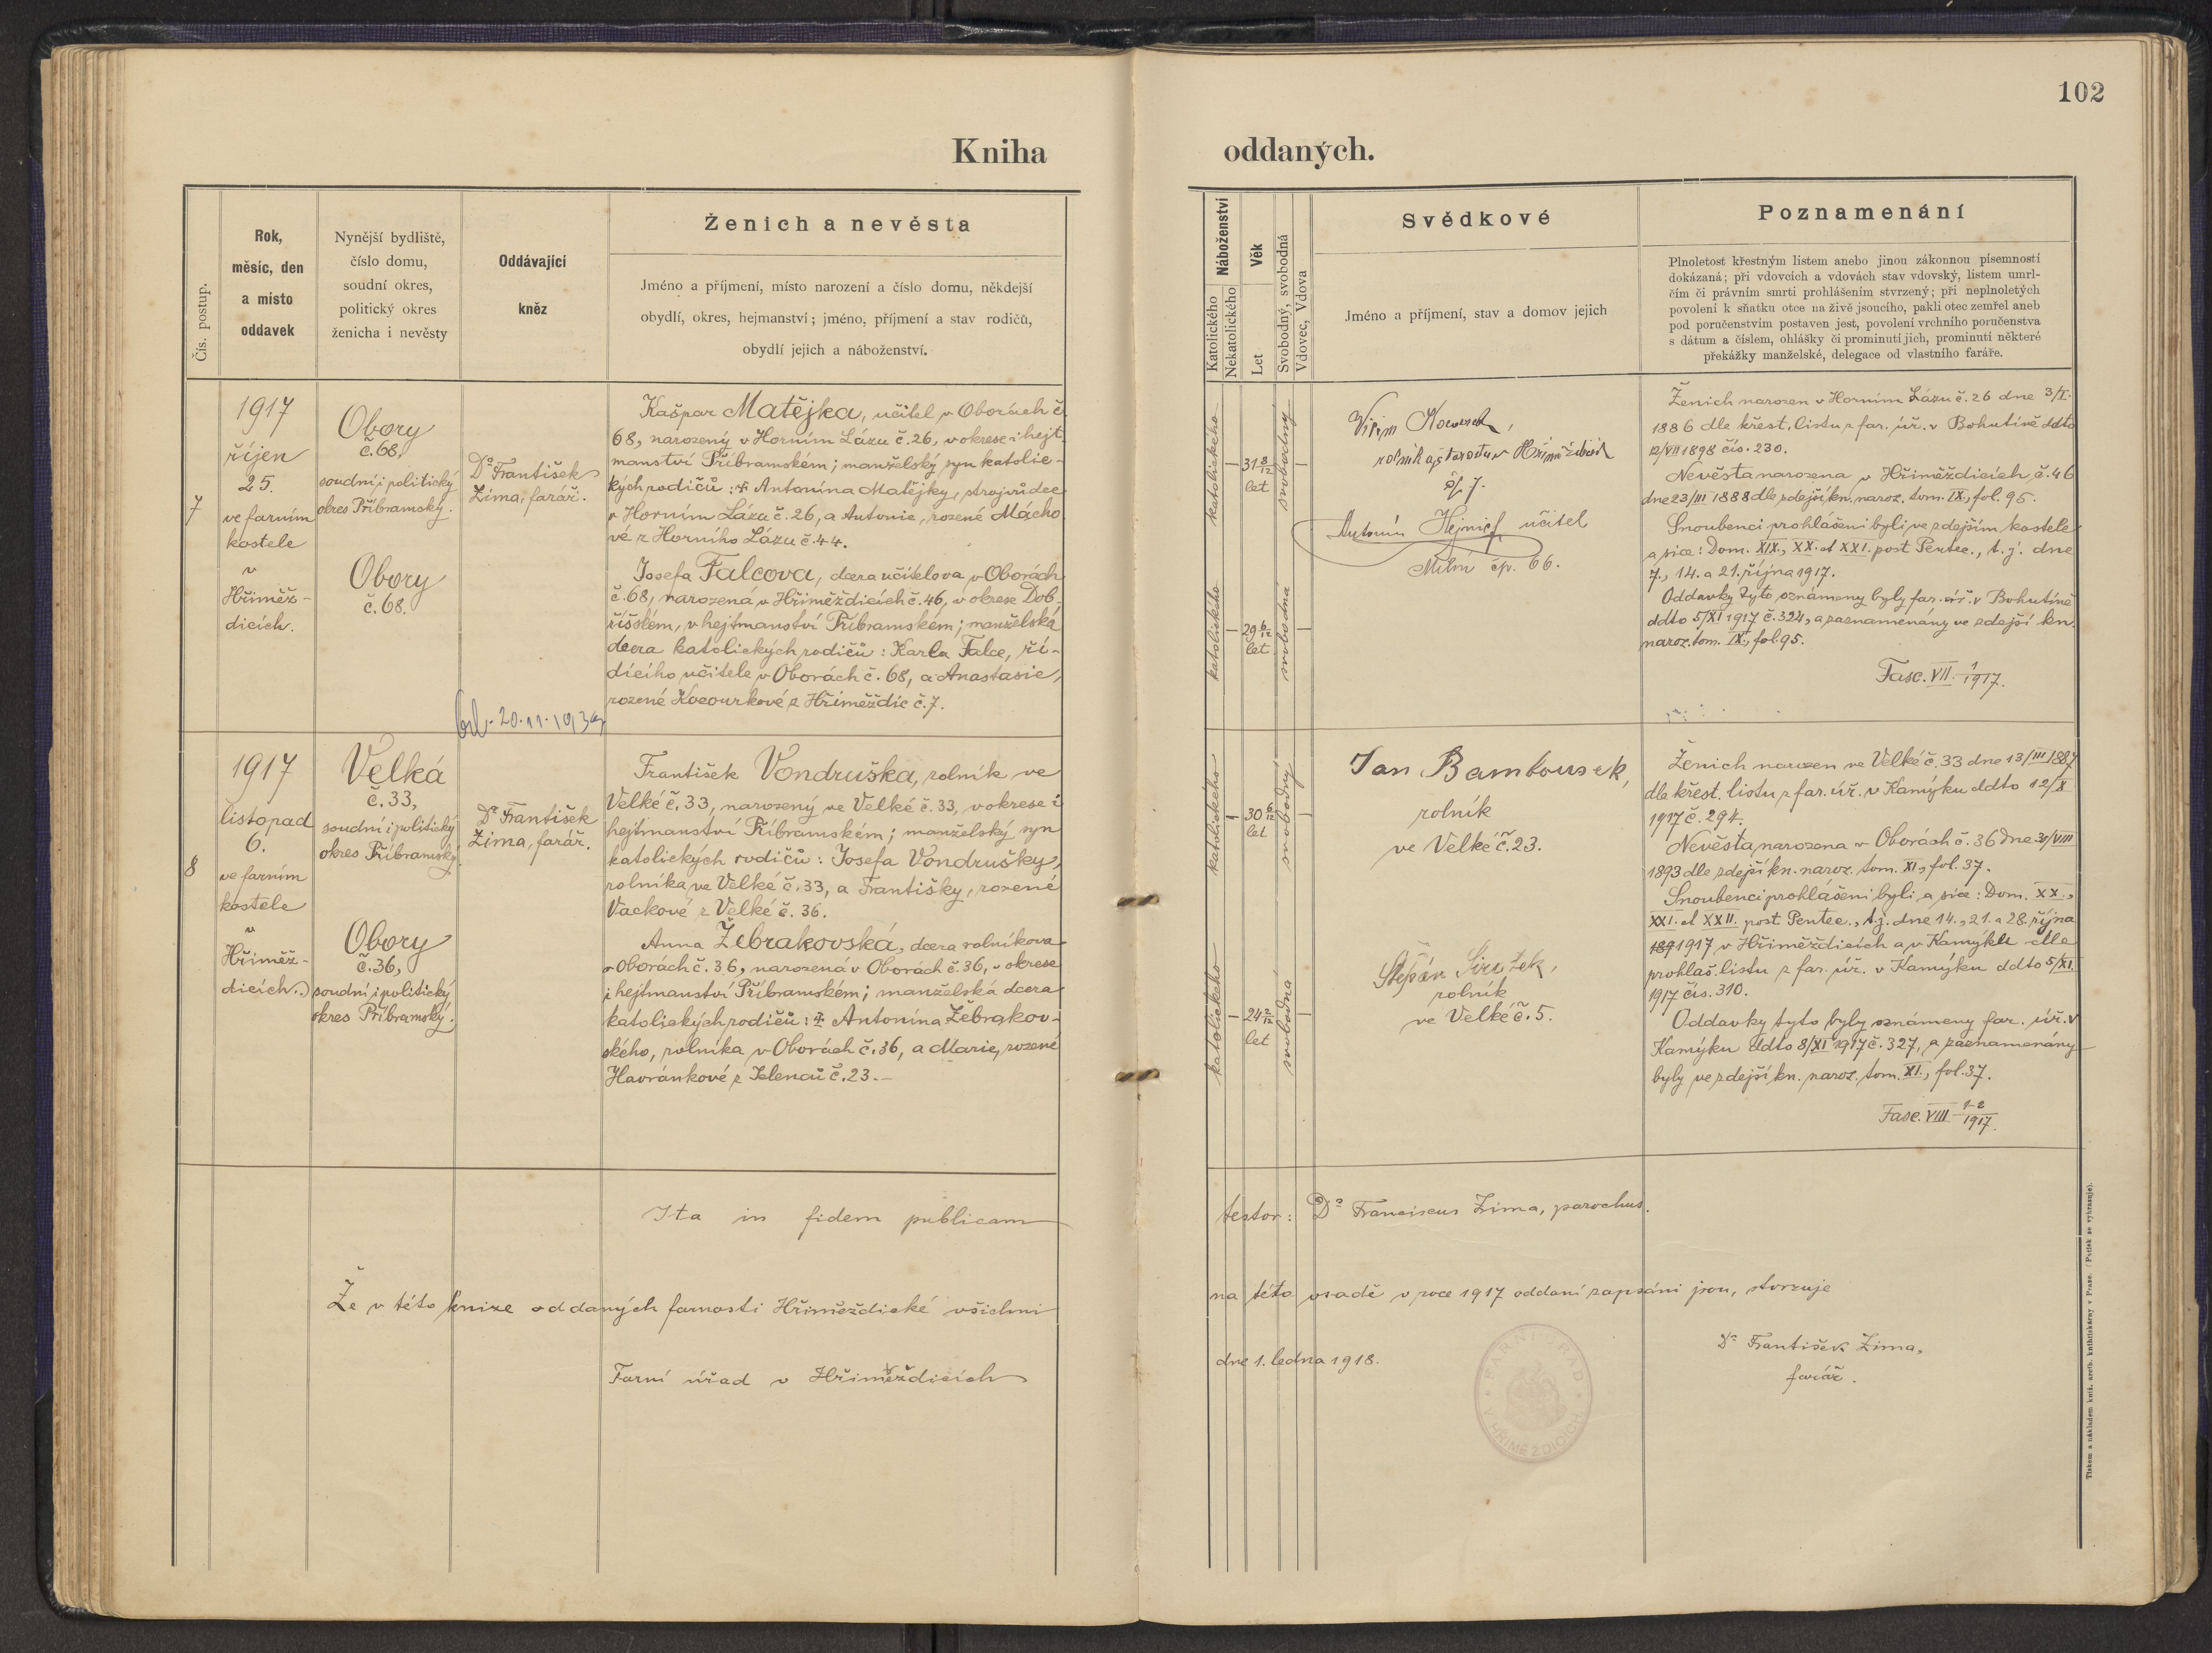 102
Kniha oddaných.
Čís. postup.
Rok,
měsíc, den
a místo
oddavek
Nynější bydliště,
číslo domu,
soudní okres,
politický okres
ženicha i nevěsty
Oddávající
kněz
Ženich a nevěsta
Jméno a příjmení, místo narození a číslo domu, někdejší
obydlí, okres, hejmanství; jméno, příjmení a stav rodičů,
obydlí jejich a náboženství.
Náboženství
Katolického
Nekatolického
Věk
Let
Svobodný, svobodná
Vdovec, Vdova
Svědkové
Jméno a příjmení, stav a domov jejich
Poznamenání
Plnoletost křestným listem anebo jinou zákonnou písemností
dokázaná; při vdovcích a vdovách stav vdovský, listem umrl-
čím či právním smrti prohlášením stvrzený; při neplnoletých
povolení k sňatku otce na živě jsoucího, pakli otec zemřel aneb
pod poručenstvím postaven jest, povolení vrchního poručenstva
s dátum a číslem, ohlášky či prominutí jich, prominutí některé
překážky manželské, delegace od vlastního faráře.
7
1917
říjen
25.
ve farním
kostele
v
Hřiměž-
dicích.
Obory
č. 68,
soudní i politický
okres Příbramský.
Obory
č. 68.
Dr František
Zima, farář.
Kašpar Matějka, učitel v Oborách č.
68, narozený v Horním Lázu č. 26, v okrese i hejt-
manství Příbramském; manželský syn katolic-
kých rodičů: ✝ Antonína Matějky, strojvůdce
v Horním Lázu č. 26, a Antonie, rozené Mácho-
vé z Horního Lázu č. 44.
Josefa Falcova, dcera učitelova v Oborách
č. 68, narozená v Hřiměždicích č. 46, v okrese Dob-
říšském, v hejtmanství Příbramském; manželská
dcera katolických rodičů: Karla Falce, ří-
dícího učitele v Oborách č. 68, a Anastasie,
rozené Kocourkové z Hřiměždic č. 7.
20.11.193
katolického
–
31 8/12
let
svobodný
–
katolického
–
29 6/12
let
svobodná
–
rolník a starosta v
čp 7.
Antonín Hejnic, učitel
čp. 66.
Ženich narozen v Horním Lázu č. 26 dne 3/I.
1886 dle křest. listu z far. úř. v Bohutíně ddto
12/VII 1898 čís. 230.
Nevěsta narozena v Hřiměždicích č. 46
dne 23/III 1888 dle zdejší kn. naroz. tom. IX., fol. 95.
Snoubenci prohlášeni byli ve zdejším kostele
a sice: Dom. XIX., XX. et XXI. post Pentec., t. j. dne
7., 14. a 21. října 1917.
Oddavky tyto oznámeny byly far. úř. v Bohutíně
ddto 5/XI 1917 č. 324, a zaznamenány ve zdejší kn.
naroz. tom. IX., fol. 95.
Fasc. VII. 1/1917.
8
1917
listopad
6.
ve farním
kostele
v
Hřiměž-
dicích.
Velká
č. 33,
soudní i politický
okres Příbramský.
Obory
č. 36,
soudní i politický
okres Příbramský.
Dr František
Zima, farář.
František Vondruška, rolník ve
Velké č. 33, narozený ve Velké č. 33, v okrese i
hejtmanství Příbramském; manželský syn
katolických rodičů: Josefa Vondrušky,
rolníka ve Velké č. 33, a Františky, rozené
Vackové z Velké č. 36.
Anna Žebrakovská, dcera rolníkova
v Oborách č. 36, narozená v Oborách č. 36, v okrese
i hejtmanství Příbramském; manželská dcera
katolických rodičů: ✝ Antonína Žebrakov-
ského, rolníka v Oborách č. 36, a Marie, rozené
Havránkové z Jelenců č. 23. –
katolického
–
30 6/12
let
svobodný
–
katolického
–
24 2/12
let
svobodná
–
Jan Bambousek,
rolník
ve Velké č. 23.
Štěpán Sirotek,
rolník
ve Velké č. 5.
Ženich narozen ve Velké č. 33 dne 13/III 1887
dle křest. listu z far. úř. v Kamýku ddto 12/X
1917 č. 294.
Nevěsta narozena v Oborách č. 36 dne 30/VIII
1893 dle zdejší kn. naroz. tom. XI., fol. 37.
Snoubenci prohlášeni byli a sice: Dom. XX.,
XXI. et XXII. post Pentec., t. j. dne 14., 21. a 28. října
189 1917 v Hřiměždicích a v Kamýku dle
prohláš. listu z far. úř. v Kamýku ddto 5/XI.
1917 čís. 310.
Oddavky tyto byly oznámeny far. úř. v
Kamýku ddto 8/XI 1917 č. 327, a zaznamenány
byly ve zdejší kn. naroz. tom. XI., fol. 37.
Fasc. VIII 1-2/1917.
Ita in fidem publicam testor: Dr Franciscus Zima, parochus.
Že v této knize oddaných farnosti Hřiměždické všichni na této osadě v roce 1917 oddaní zapsáni jsou, stvrzuje
Farní úřad v Hřiměždicích dne 1. ledna 1918.
Dr František Zima,
farář.
FARNÍ ÚŘAD
V HŘIMĚŽDICÍCH
Tiskem a nákladem kníž. arcib. knihtiskárny v Praze. (Patisk se vyhrazuje).